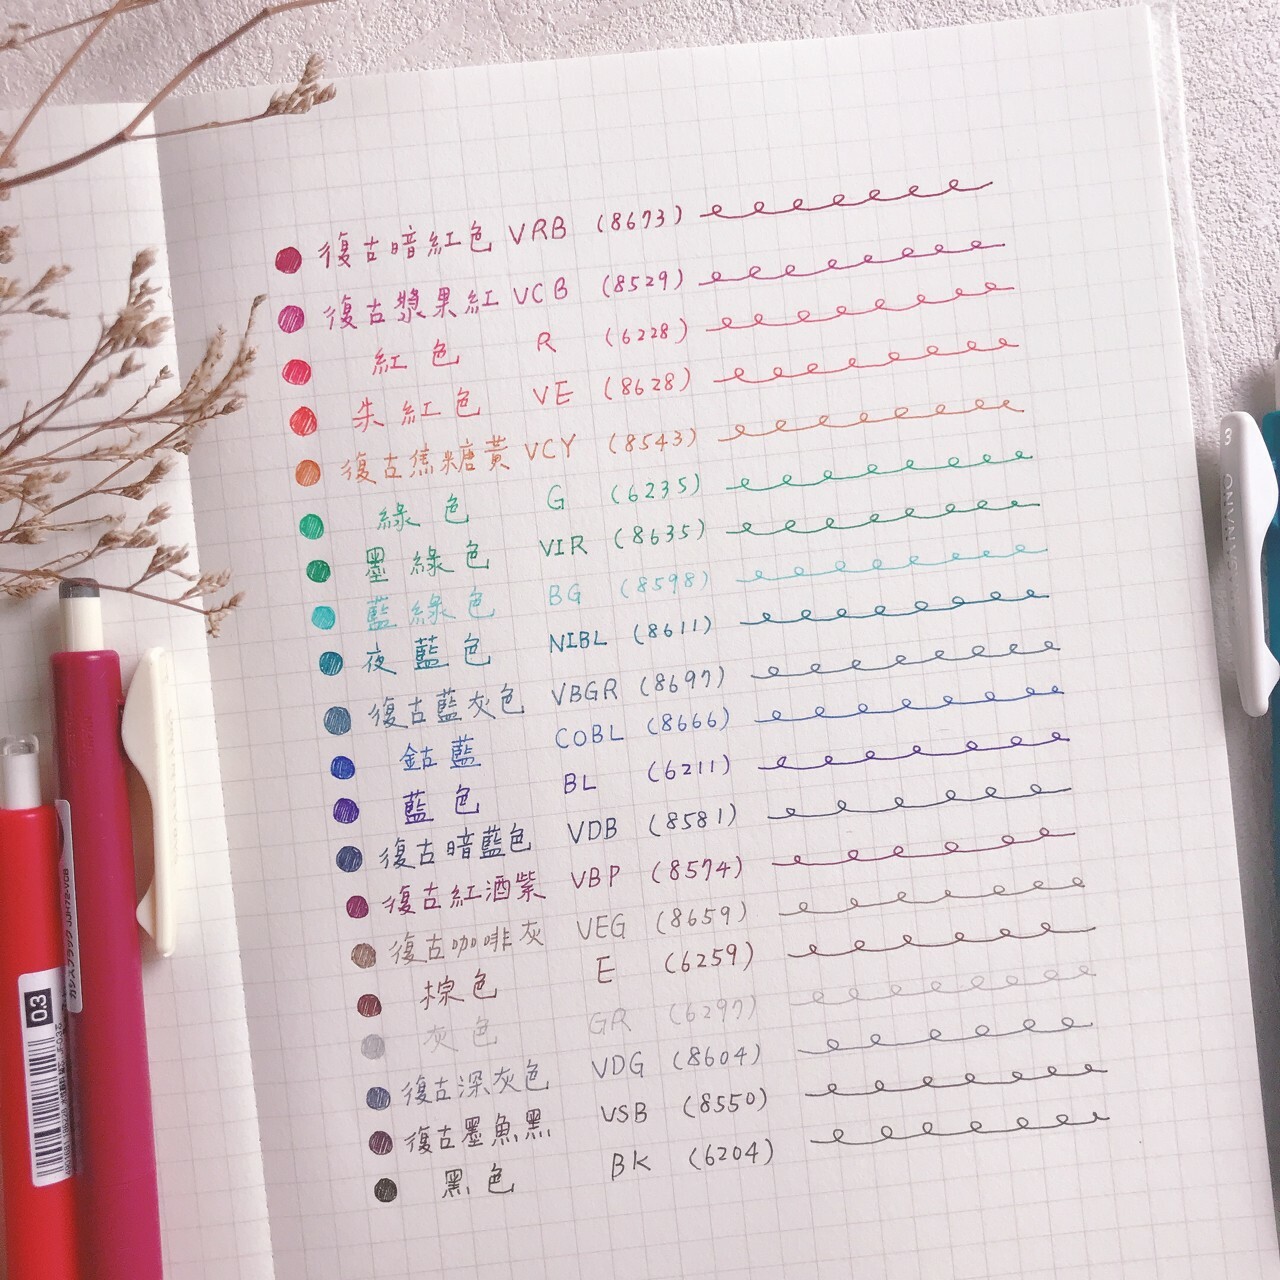 復古暗紅色 VRB (8673)
復古漿果紅 VCB (8529)
紅色 R (6228)
朱紅色 VE (8628)
復古焦糖黃 VCY (8543)
綠色 G (6235)
墨綠色 VIR (8635)
藍綠色 BG (8598)
夜藍色 NIBL (8611)
復古藍灰色 VBGR (8697)
鈷藍 COBL (8666)
藍色 BL (6211)
復古暗藍色 VDB (8581)
復古紅酒紫 VBP (8574)
復古咖啡灰 VEG (8659)
棕色 E (6259)
灰色 GR (6297)
復古深灰色 VDG (8604)
復古墨魚黑 VSB (8550)
黑色 BK (6204)
0.3
カシスブラック JJH72-VCB
SARASA NANO 3